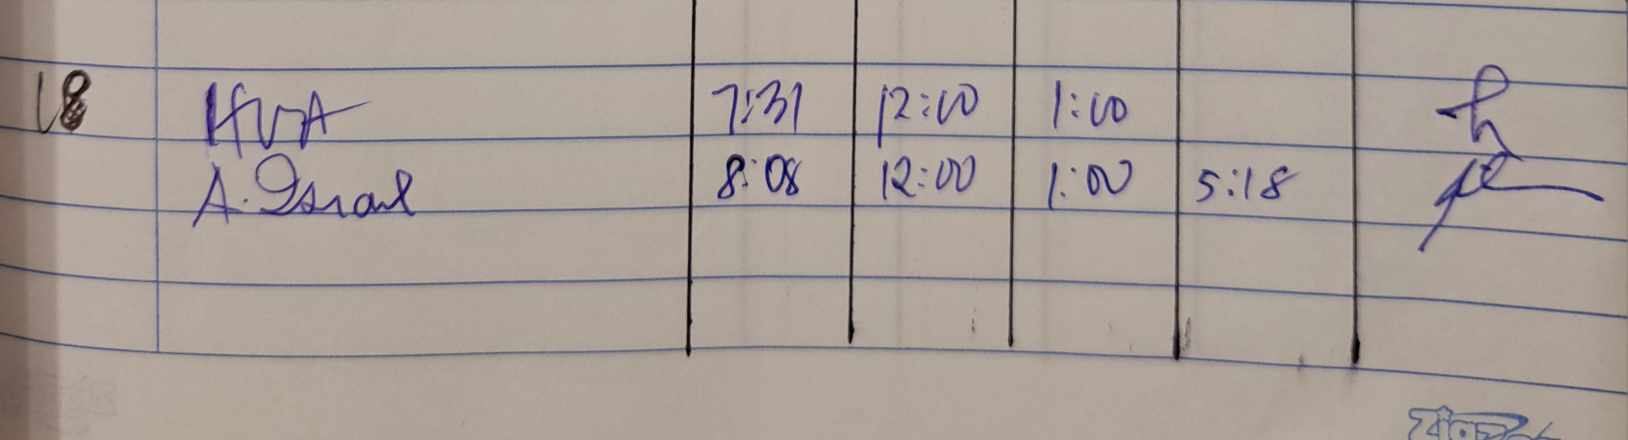 18 HVA 7:31 12:00 1:00
A. Israel 8:08 12:00 1:00 5:18